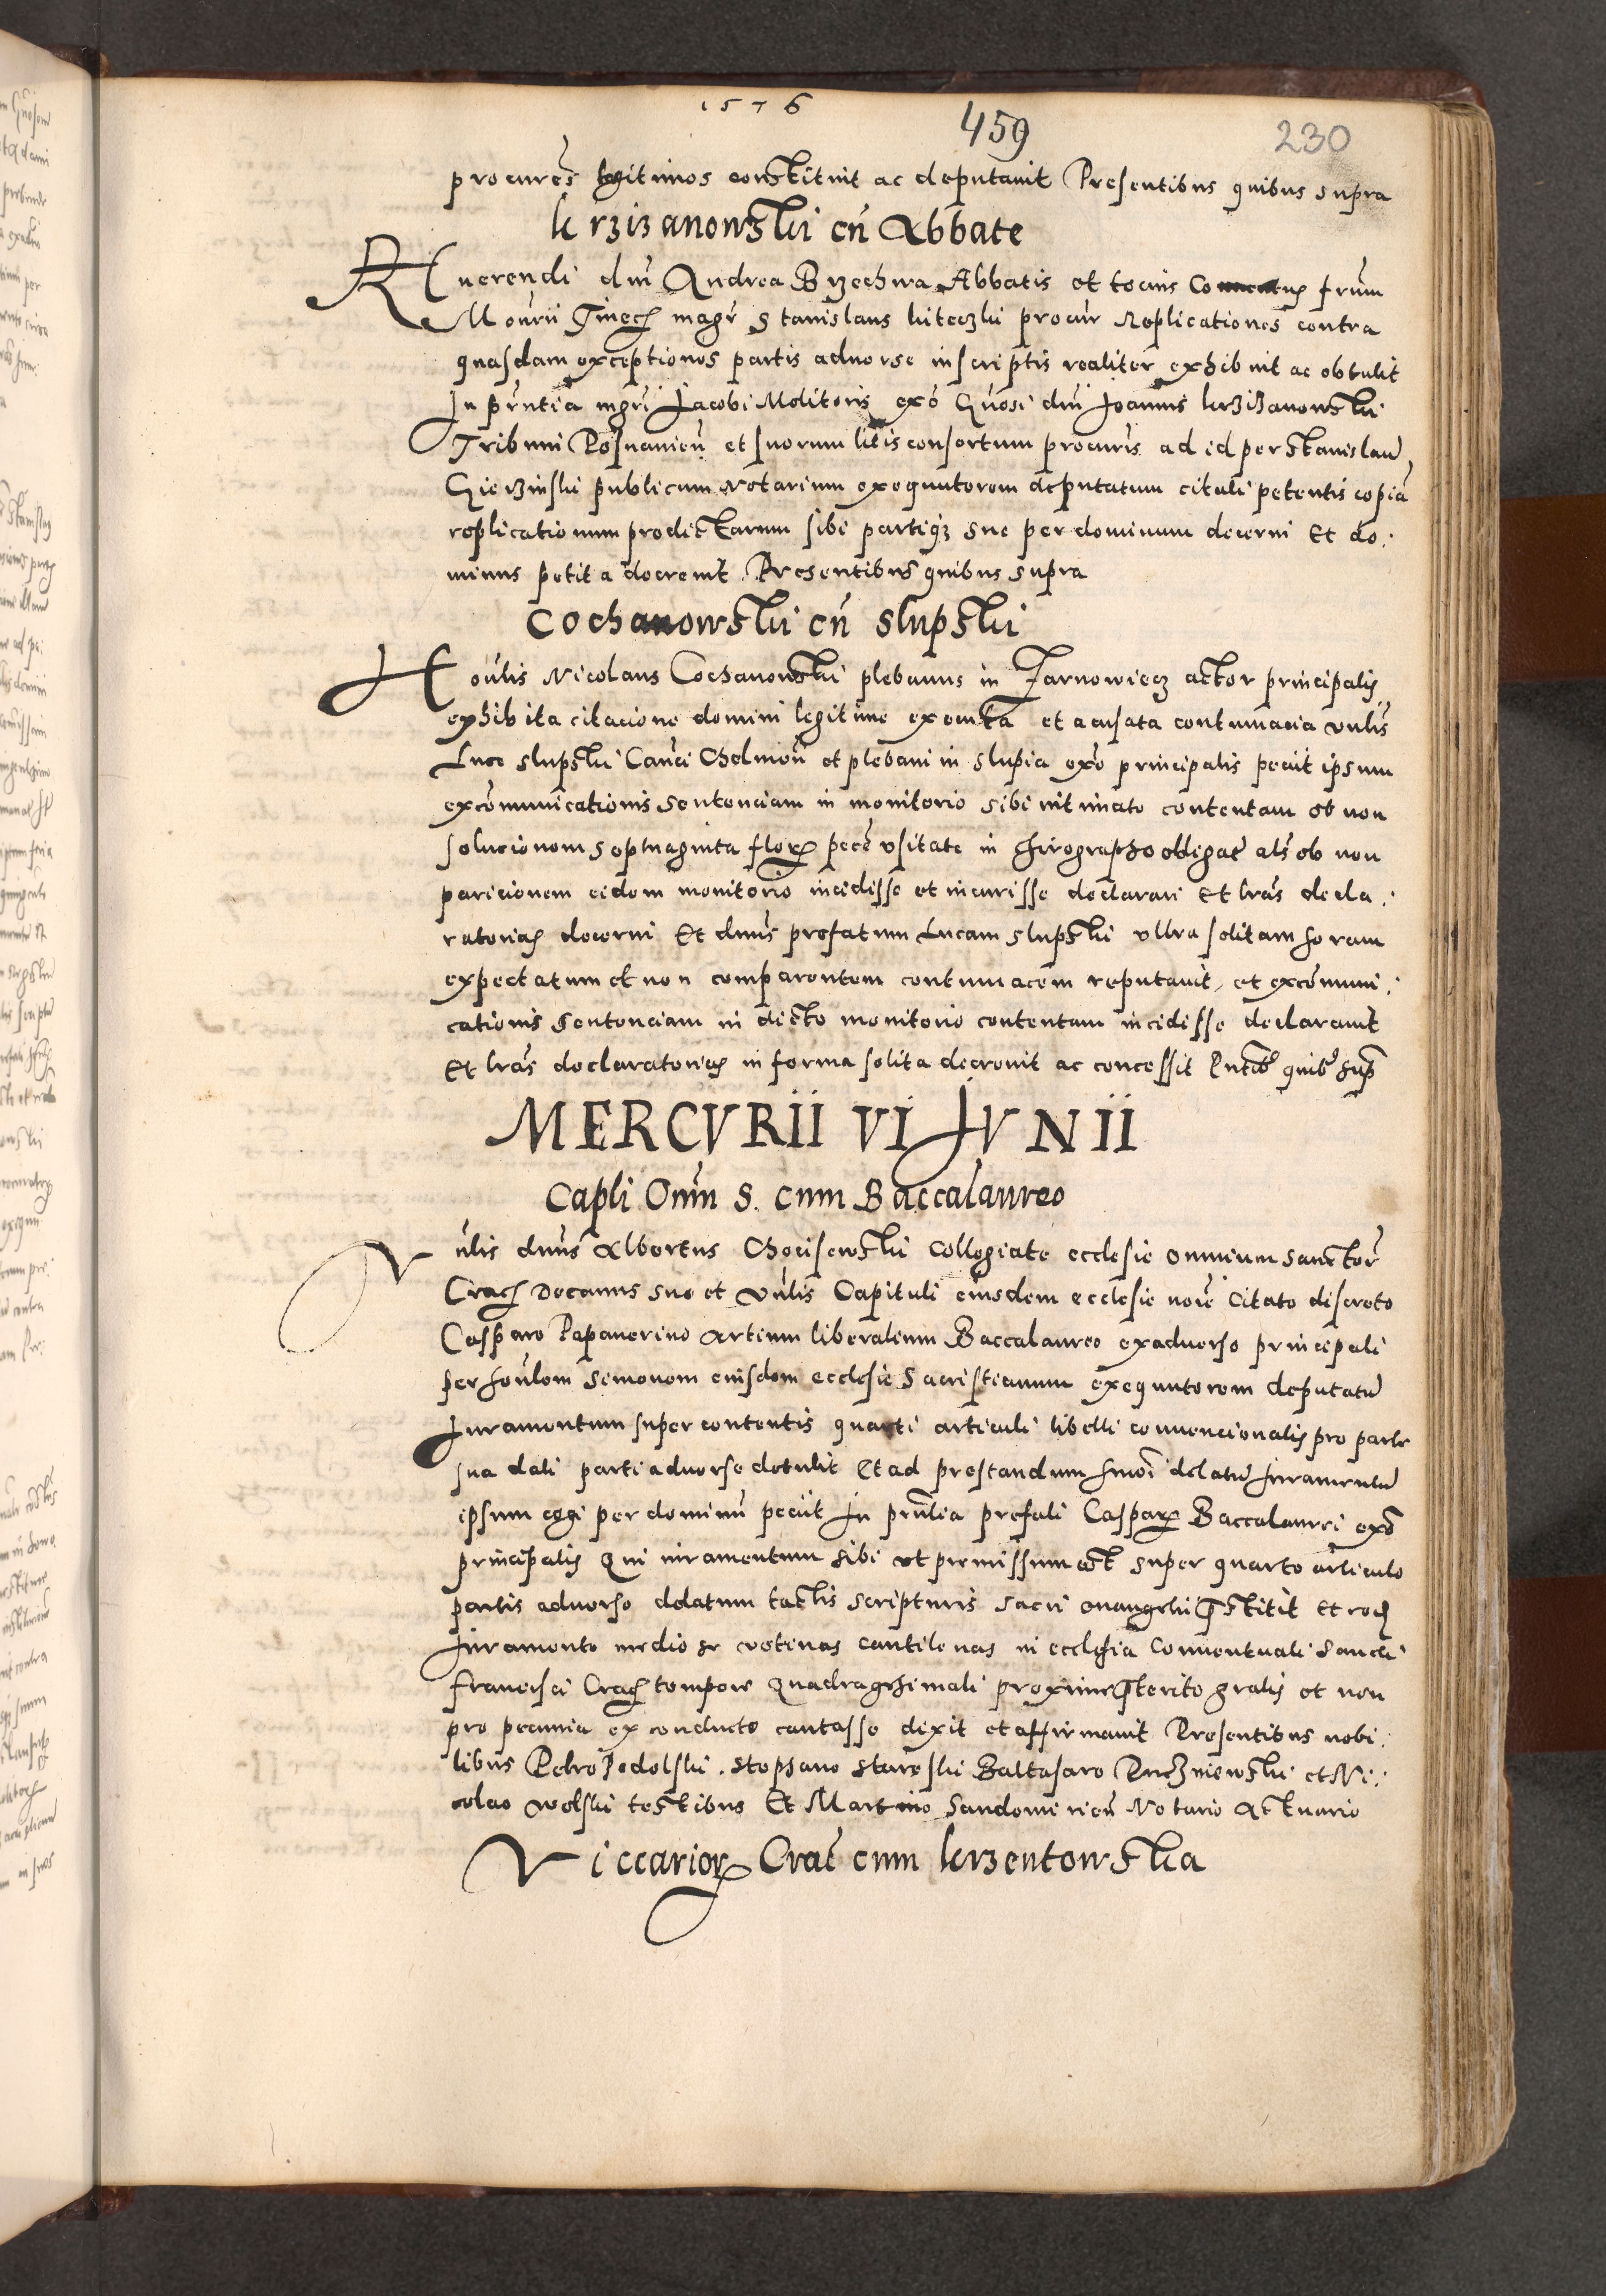 1576
459
230
procures legitimos constituit ac deputauit Presentibus quibus supra
krzizanowski cu Abbate
Reuerendi dni Andrea Brzechwa Abbatis et tocius Conuentus frum
Mourii Tinecz magr Stanislaus kuteczki procur Replicationes contra
quasdam exceptiones partis aduerse inscriptis realiter exhibuit ac obtulit
In prntia mgri Jacobi Molitoris exo Gnosi dni Joannis krzizanowski
Tribuni Posnanien et suorum litis consortum procuris ad id per Stanislau
Gierzinski publicum Notarium exequutorem deputatum citati petentis copia
replicationum predictarum sibi partiqz sue per dominum decerni Et do:
minus petita decreuit. Presentibus quibus supra
Cochanowski cu Slupski
Houlis Nicolaus Cochanowski plebanus in Jarnowiecz actor principalis
exhibita citacione domini legitime executa et acusata contumacia vulis
Luce Slupski Canci Chelmen et plebani in Slupia exo principalis peciit ipsum
excomunicationis sentenciam in monitorio sibi intimato contentam ob non
solucionem septuaginta flor pece vsitate in chirographo obligat als ob non
paricionem eidem monitorio incidisse et incurisse declarari Et lras decla:
ratorias decerni Et dnus prefatum Lucam Slupski vltra solitam horam
expectatum et non comparentem contumacem reputauit, et excomuni:
cationis sentenciam in dicto monitorio contentam incidisse declarauit
Et lras declaratorias in forma solita decreuit ac concessit Pntib quib sup
MERCVRII VI JVNII
Capli Omm S. cum Baccalaureo
Vulis dnus Albertus Chocisewski Collegiate ecclesie omnium sanctor
Crac Decanus suo et vulis Capituli eiusdem ecclesie noie Citato discreto
Casparo Papauerino Artium liberalium Baccalaureo exaduerso principali
per houlem Simonem eiusdem ecclesie Sacristianum exequutorem deputatu
Juramentum super contentis quarti articuli libelli conuencionalis pro parte
sua dati parti aduerse detulit Et ad prestandum hmoi delatu Juramentu
ipsum cogi per dominu peciit In prntia prefati Caspar Baccalaurei exo
principalis Qui iuramentum sibi vt premissum est super quarto articulo
partis aduerse delatum tactis scripturis sacri euangelii pstitit Et eod
Juramento medio se vetenas cantilenas in ecclesia Conuentuali Sancti
Francisci Crac tempore Quadragesimali proxime pterito gratis et non
pro pecunia ex conducto cantasse dixit et affirmauit Presentibus nobi:
libus Petro Podolski. Stephano Stareski Baltasaro Rusznieiewski et Ni:
colao Wolski testibus Et Martino Sandomirien Notario Actuario
Viccarior Crac cum krzentowska